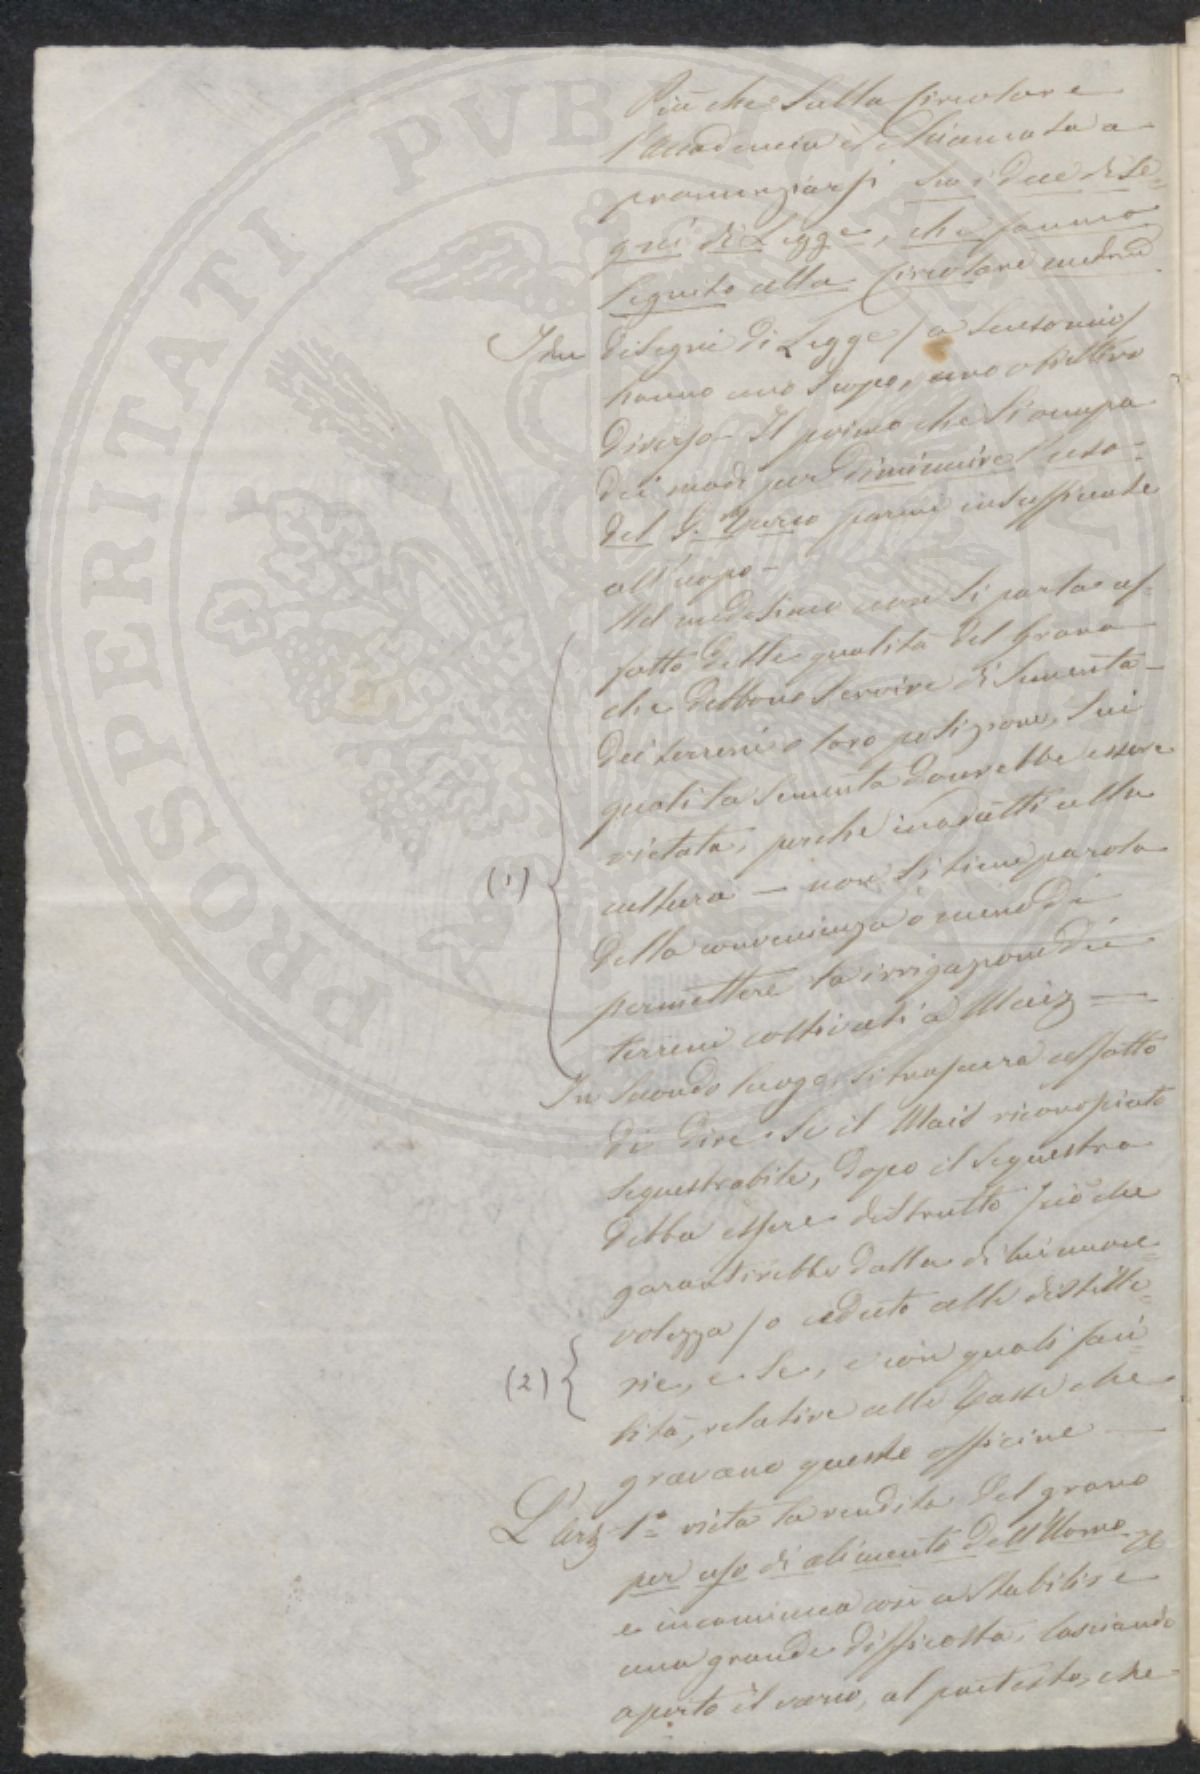 Più che sulla Circolare
l'Accademia è chiamata a
pronunziarsi sui due dise=
gni di Legge, che fanno
seguito alla Circolare med.
I due disegni di Legge (a senso mio)
hanno uno scopo, uno obiettivo
diverso - Il primo che si occupa
dei modi per diminuire l'uso
del G. Turco parmi insufficiente
all'uopo -
Nel medesimo non si parla af=
fatto delle qualità del grano
che debbono servire di sementa -
dei terreni o loro posizione, sui
quali la sementa dovrebbe essere
vietata, perché inadatti alla
cultura — non si tiene parola
della convenienza o meno di
permettere la irrigazione dei
terreni coltivati a Maiz —
(1)
In secondo luogo, si trascura affatto
di dire se il Mais riconosciuto
sequestrabile, dopo il sequestro
debba essere distrutto (ciò che
garantirebbe dalla di lui nuoce=
volezza) o ceduto alle distille=
rie, e se, e con quali faci=
lità, relative alle Tasse che
gravano queste officine —
(2)
L'Art 1° vieta la vendita del grano
per uso di alimento dell'Uomo
e incomincia così a stabilire
una grande difficoltà, lasciando
aperto il varco, al pretesto, che
PROSPERITATI PVBLICAE